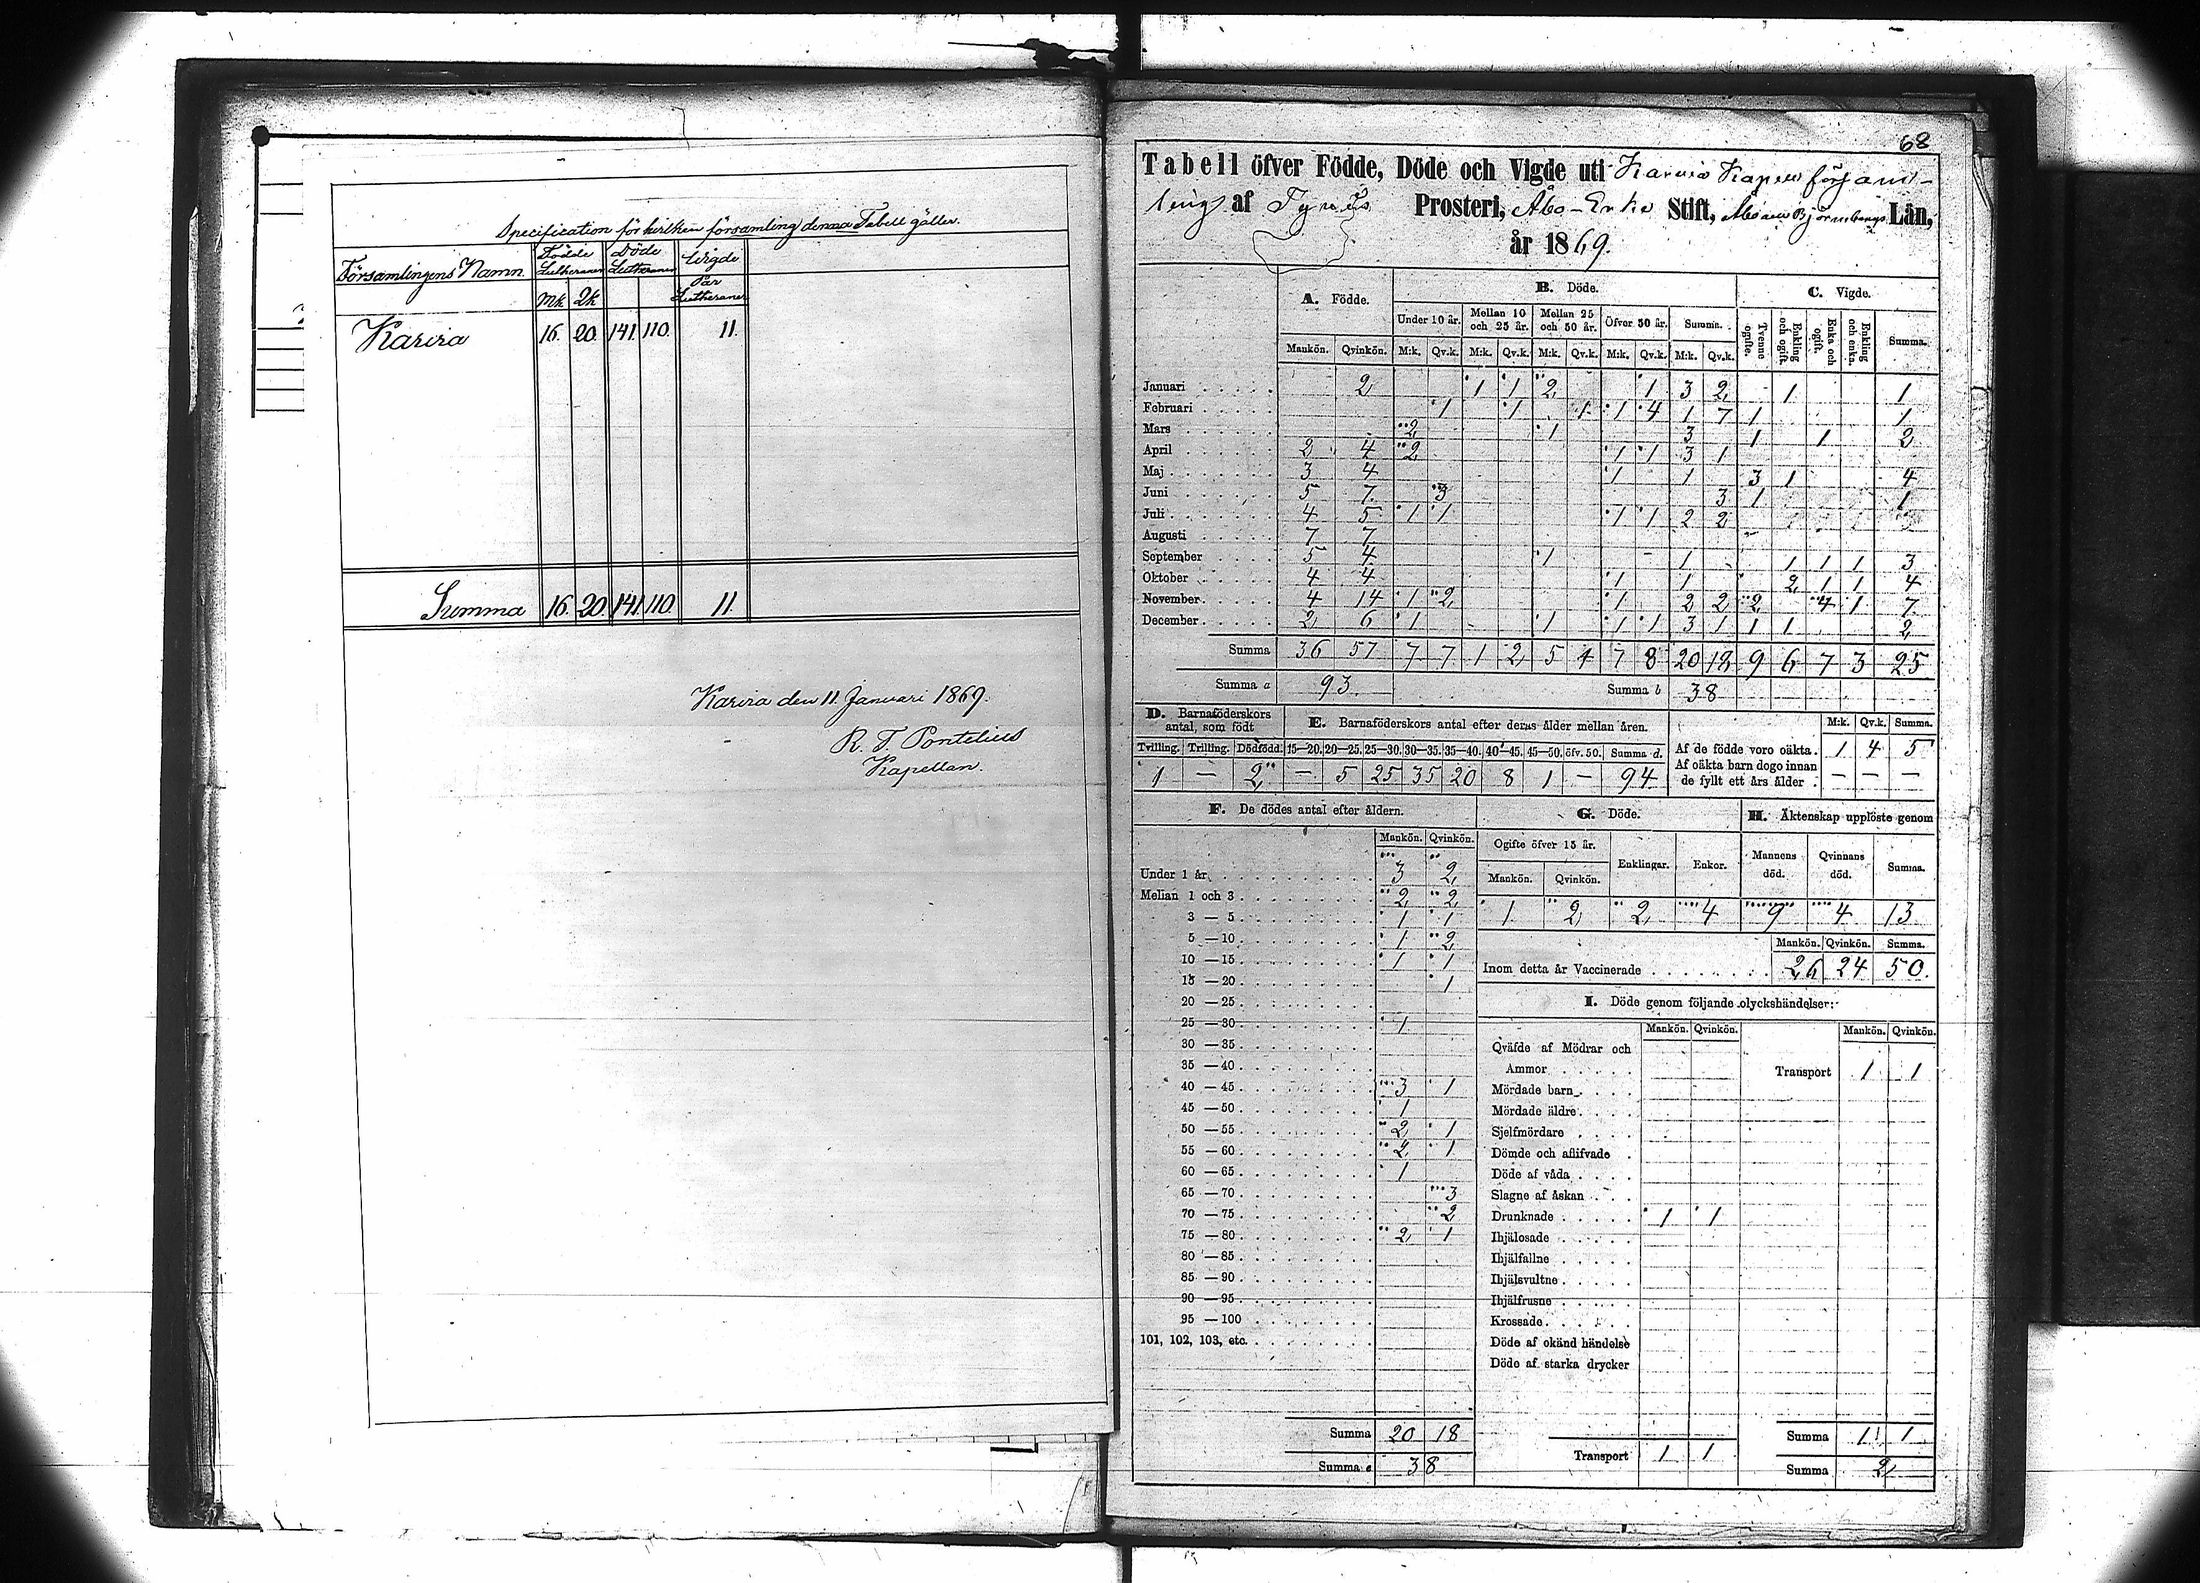 Specification för hvilken församling denna Tabell gäller.
Församlingens Namn. Födde Lutheraner Döde Lutheraner Vigde Par Lutheraner
Mk Qk
Karvia 16. 20. 141. 110. 11.
Summa 16. 20. 141. 110. 11.
Karvia den 11. Januari 1869.
R. F. Pontelius
Kapellan.
68
Tabell öfver Födde, Döde och Vigde uti Karvia Kapell församling
af Tyrvis Prosteri, Åbo-Erke Stift, Åbo och Björneborgs Län,
år 1869.
A. Födde. B. Döde. C. Vigde.
Under 10 år. Mellan 10 och 25 år. Mellan 25 och 50 år. Öfver 50 år. Summa. Tvenne ogifte. Enkling och ogift. Enka och ogift. Enkling och enka. Summa.
Mankön. Qvinkön. M:k. Qv.k. M:k. Qv.k. M:k. Qv.k. M:k. Qv.k. M:k. Qv.k.
Januari 2 1 1 2 1 3 2 1 1
Februari 1 1 1 1 4 1 7 1 1
Mars 2 1 3 1 1 2
April 2 4 2 1 1 3 1
Maj 3 4 1 1 3 1 4
Juni 5 7 3 3 1 1
Juli 4 5 1 1 1 1 2 2
Augusti 7 7
September 5 4 1 1 1 1 1 3
Oktober 4 4 1 1 2 1 1 4
November 4 14 1 2 1 2 2 2 4 1 7
December 2 6 1 1 1 1 3 1 1 1 2
Summa 36 57 7 7 1 2 5 1 7 8 20 18 9 6 7 3 25
Summa a 93 Summa b 38
D. Barnaföderskors antal, som födt E. Barnaföderskors antal efter deras ålder mellan åren. M:k. Qv.k. Summa.
Tvilling. Trilling. Dödfödd. 15—20. 20—25. 25—30. 30—35. 35—40. 40—45. 45—50. öfv. 50. Summa d.
1 — 2 — 5 25 35 20 8 1 — 94
Af de födde voro oäkta. 1 4 5
Af oäkta barn dogo innan
de fyllt ett års ålder . — — —
F. De dödes antal efter åldern.
Mankön. Qvinkön.
Under 1 år 3 2
Mellan 1 och 3 2 2
3 — 5 1 1
5 — 10 1 2
10 — 15 1 1
15 — 20 1
20 — 25
25 — 30 1
30 — 35
35 — 40
40 — 45 3 1
45 — 50 1
50 — 55 2 1
55 — 60 2 1
60 — 65 1
65 — 70 3
70 — 75 2
75 — 80 2 1
80 — 85
85 — 90
90 — 95
95 — 100
101, 102, 103, etc.
Summa 20 18
Summa e 38
G. Döde. H. Äktenskap upplöste genom
Ogifte öfver 15 år. Enklingar. Enkor. Mannens död. Qvinnans död. Summa.
Mankön. Qvinkön.
1 2 2 4 9 4 13
Mankön. Qvinkön. Summa.
Inom detta år Vaccinerade 26 24 50.
I. Döde genom följande olyckshändelser:
Mankön. Qvinkön. Mankön. Qvinkön.
Qväfde af Mödrar och
Ammor Transport 1 1
Mördade barn
Mördade äldre
Sjelfmördare
Dömde och aflifvade
Döde af våda
Slagne af åskan
Drunknade 1 1
Ihjälosade
Ihjälfallne
Ihjälsvultne
Ihjälfrusne
Krossade
Döde af okänd händelse
Döde af starka drycker
Transport 1 1
Summa 1 1
Summa 2